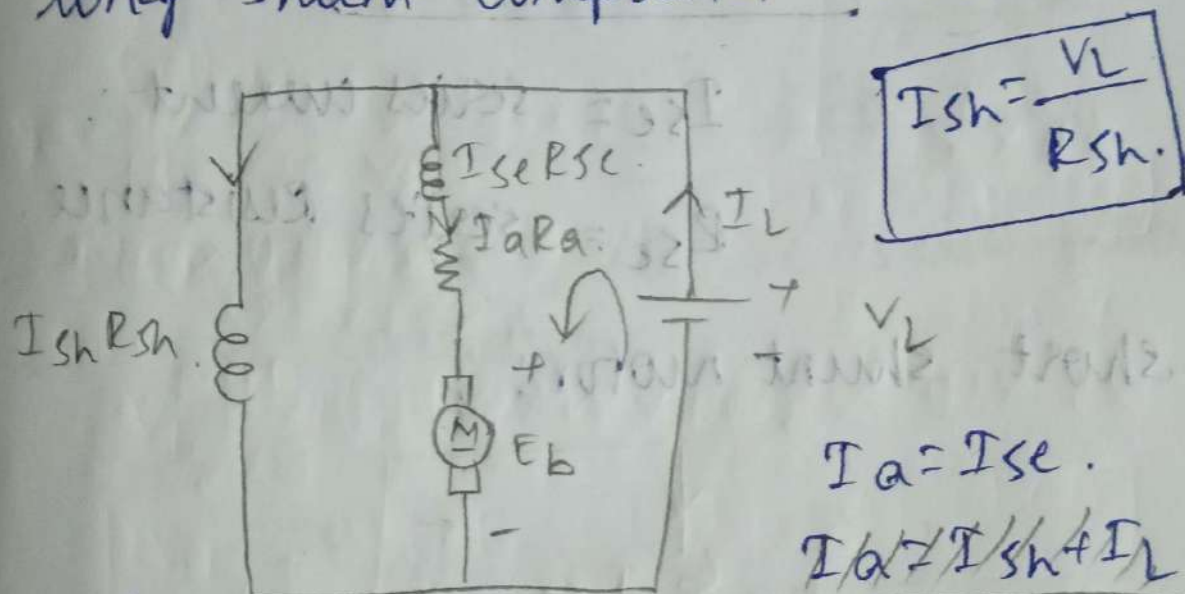 long shunt
Ish = VL / Rsh.
Ise Rse.
Ia Ra.
IL
Ish Rsh.
+
+
-
VL
M
Eb
-
Ia = Ise.
Ia = Ish + IL